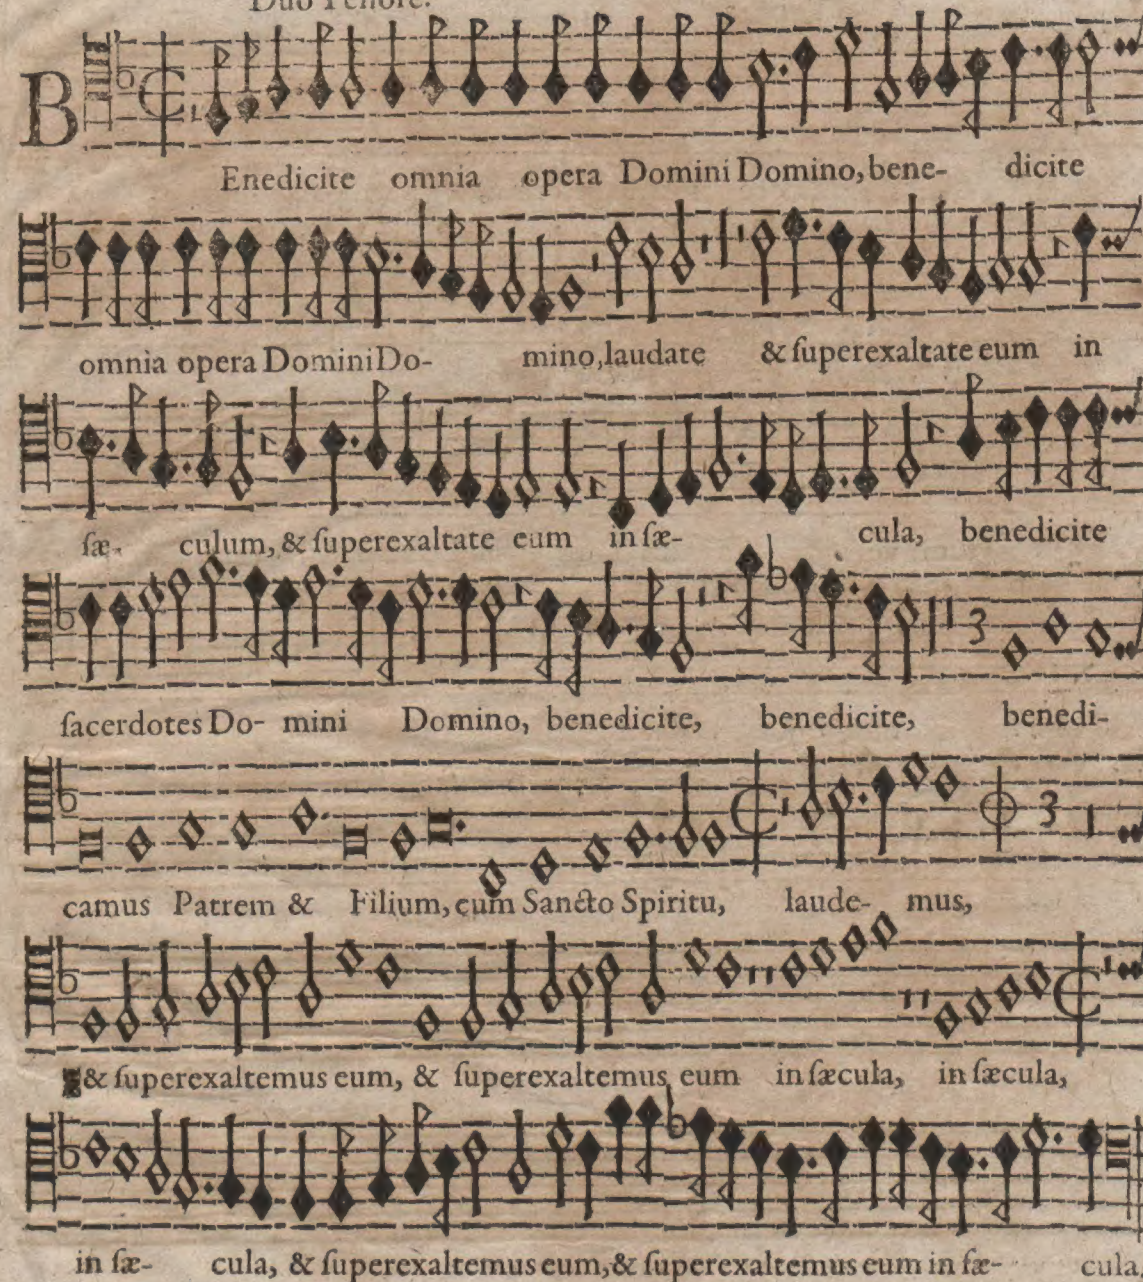 Duo Tenore.
BEnedicite omnia opera Domini Domino, bene- dicite
omnia opera Domini Do- mino, laudate & ſuperexaltate eum in
ſæ- culum, & ſuperexaltate eum in ſæ- cula, benedicite
ſacerdotes Do- mini Domino, benedicite, benedicite, benedi-
camus Patrem & Filium, cum Sancto Spiritu, laude- mus,
& ſuperexaltemus eum, & ſuperexaltemus eum in ſæcula, in ſæcula,
in ſæ- cula, & ſuperexaltemus eum, & ſuperexaltemus eum in ſæ- cula